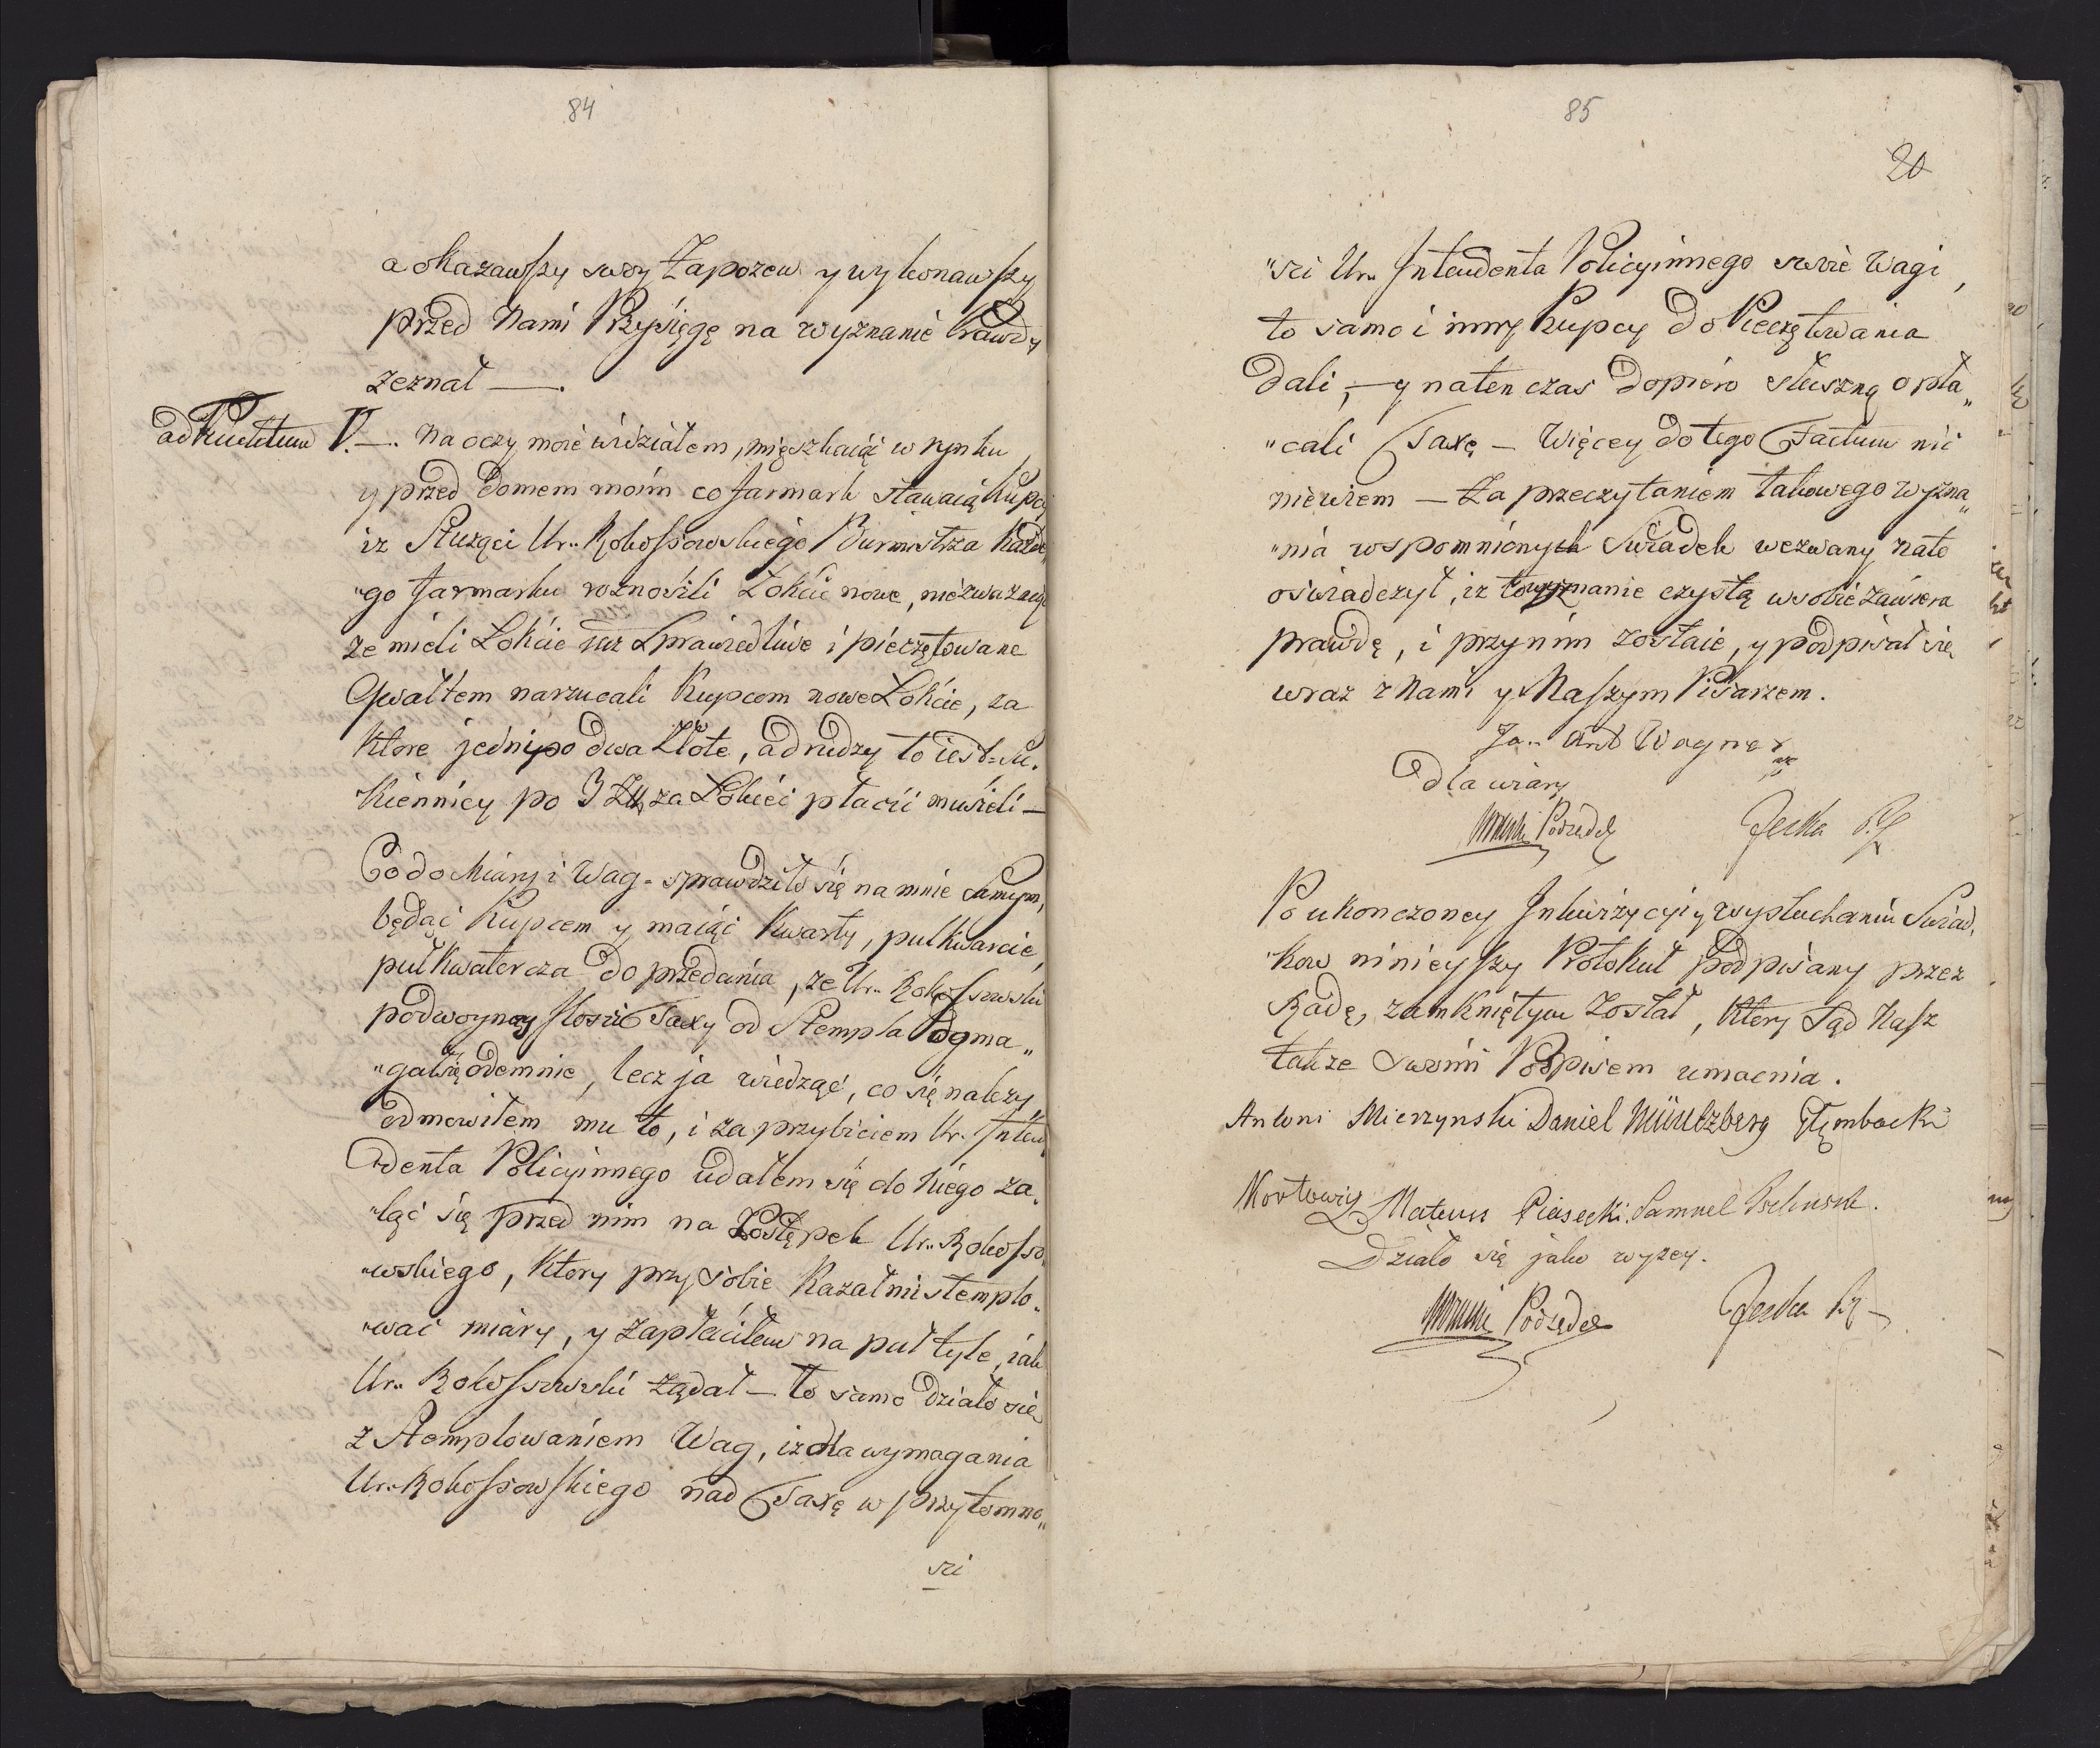 84
a okazawszy swoy Zapozew y wykonawszy
przed Nami Przysięgę na wyznanie Prawdy
zeznał —.
ad Punctum V. —. Na oczy moie widziałem, mięszkaiąc w rynku,
y przed Domem moim co Jarmark stawaią Kupcy
iz Słuzący Ur.. Rokossowskiego Burmistrza Kazde
"go Jarmarku roznosili Łokcie nowe, niezwazaiąc
ze mieli Łokcie iuz Sprawiedliwe i pieczętowane
Gwałtem narzucali Kupcom nowe Łokcie, za
Ktore jedni po dwa Złote, a drudzy to iest = Su.
"Kiennicy po 3 Zł. za Łokieć płacić musieli —
Co do Miary i Wag = sprawdziło się na mnie Samym,
będąc Kupcem y maiąc Kwarty, pułkwarcie,
pułkwatercza do przedania, ze Ur.. Rokossowski
podwoyney Ilości Taxy od Stempla dogma„
"gał się odemnie, lecz ja wiedząc, co się nalezy,
odmowiłem mu to, i za przybiciem Ur. Inten
denta Policyinnego udałem się do Niego za„
"ląc się przed nim na Postępek Ur.. Rokosso„
"wskiego, Ktory przy sobie Kazał mi stemplo„
"wać miary, y Zapłaciłem na puł tyle, iak
Ur.. Rokossowski ządał — to samo działo sie
z Stemplowaniem Wag, iz dla wymagania
Ur.. Rokossowskiego nad Taxę w przytomno„
ści
85
20
"ści Ur.. Intendenta Policyinnego swoie Wagi,
to samo i inny Kupcy do Pieczętowania
Dali, — y naten czas dopiero słuszną opła„
"cali Taxę — Więcey do tego Factum nic
niewiem — Za przeczytaniem takowego wyzna„
"nia wspomnionych Swiadek wezwany nato
oswiadczył, iz to wyznanie czystą w sobie zawiera
prawdę, i przy nim zostaie, y podpisał się
wraz z Nami y Naszym Pisarzem.
Jo.. Ant Wagner
Dla wiary
Podsędek Jeska
Po ukonczoney Inkwizycyi y wysłuchaniu Swiad„
"Kow ninieyszy Protokuł podpisany przez
Radę, zamkniętym został, Ktory Sąd Nasz
takze Swoim Podpisem umacnia.
Antoni Mierzynski Daniel Müntzberg Głęmbocki
Mortowiz Mateusz Piasecki. Samuel
Działo się jako wyzey.
Podsędek Jeska